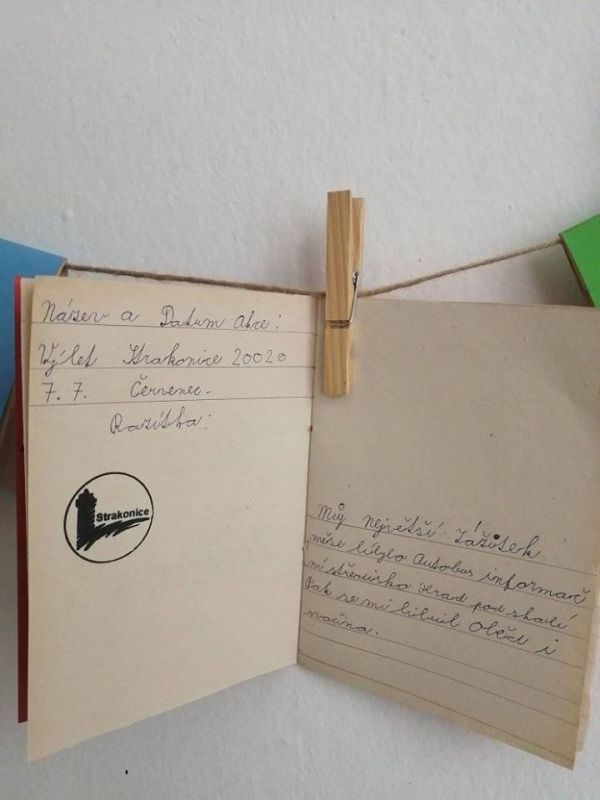 Název a Datum Akce:
Výlet Strakonice 20020
7. 7. Červenec.
Razítka:
Strakonice
Můj největší zážitek
měse líbylo Autobus informač
ní středisko Hrad pod skalí
Pak se mi líbil Oběd i
svačina.